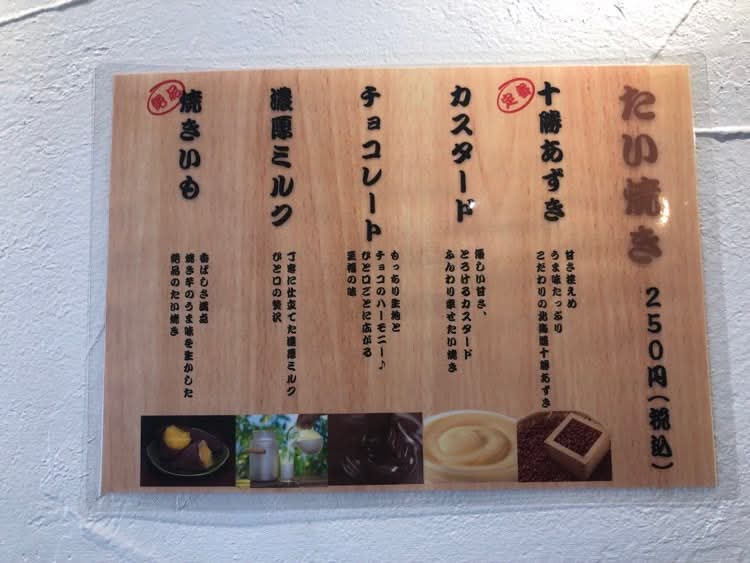 たい焼き
250円(税込)
定番
十勝あずき
甘さ控えめ
うま味たっぷり
こだわりの北海道十勝あずき
カスタード
優しい甘さ、
とろけるカスタード
ふんわり幸せたい焼き
チョコレート
もっちり生地と
チョコのハーモニー♪
ひと口ごとに広がる
至福の味
濃厚ミルク
丁寧に仕立てた濃厚ミルク
ひと口の贅沢
絶品
焼きいも
香ばしさ満点
焼き芋のうま味を生かした
絶品のたい焼き